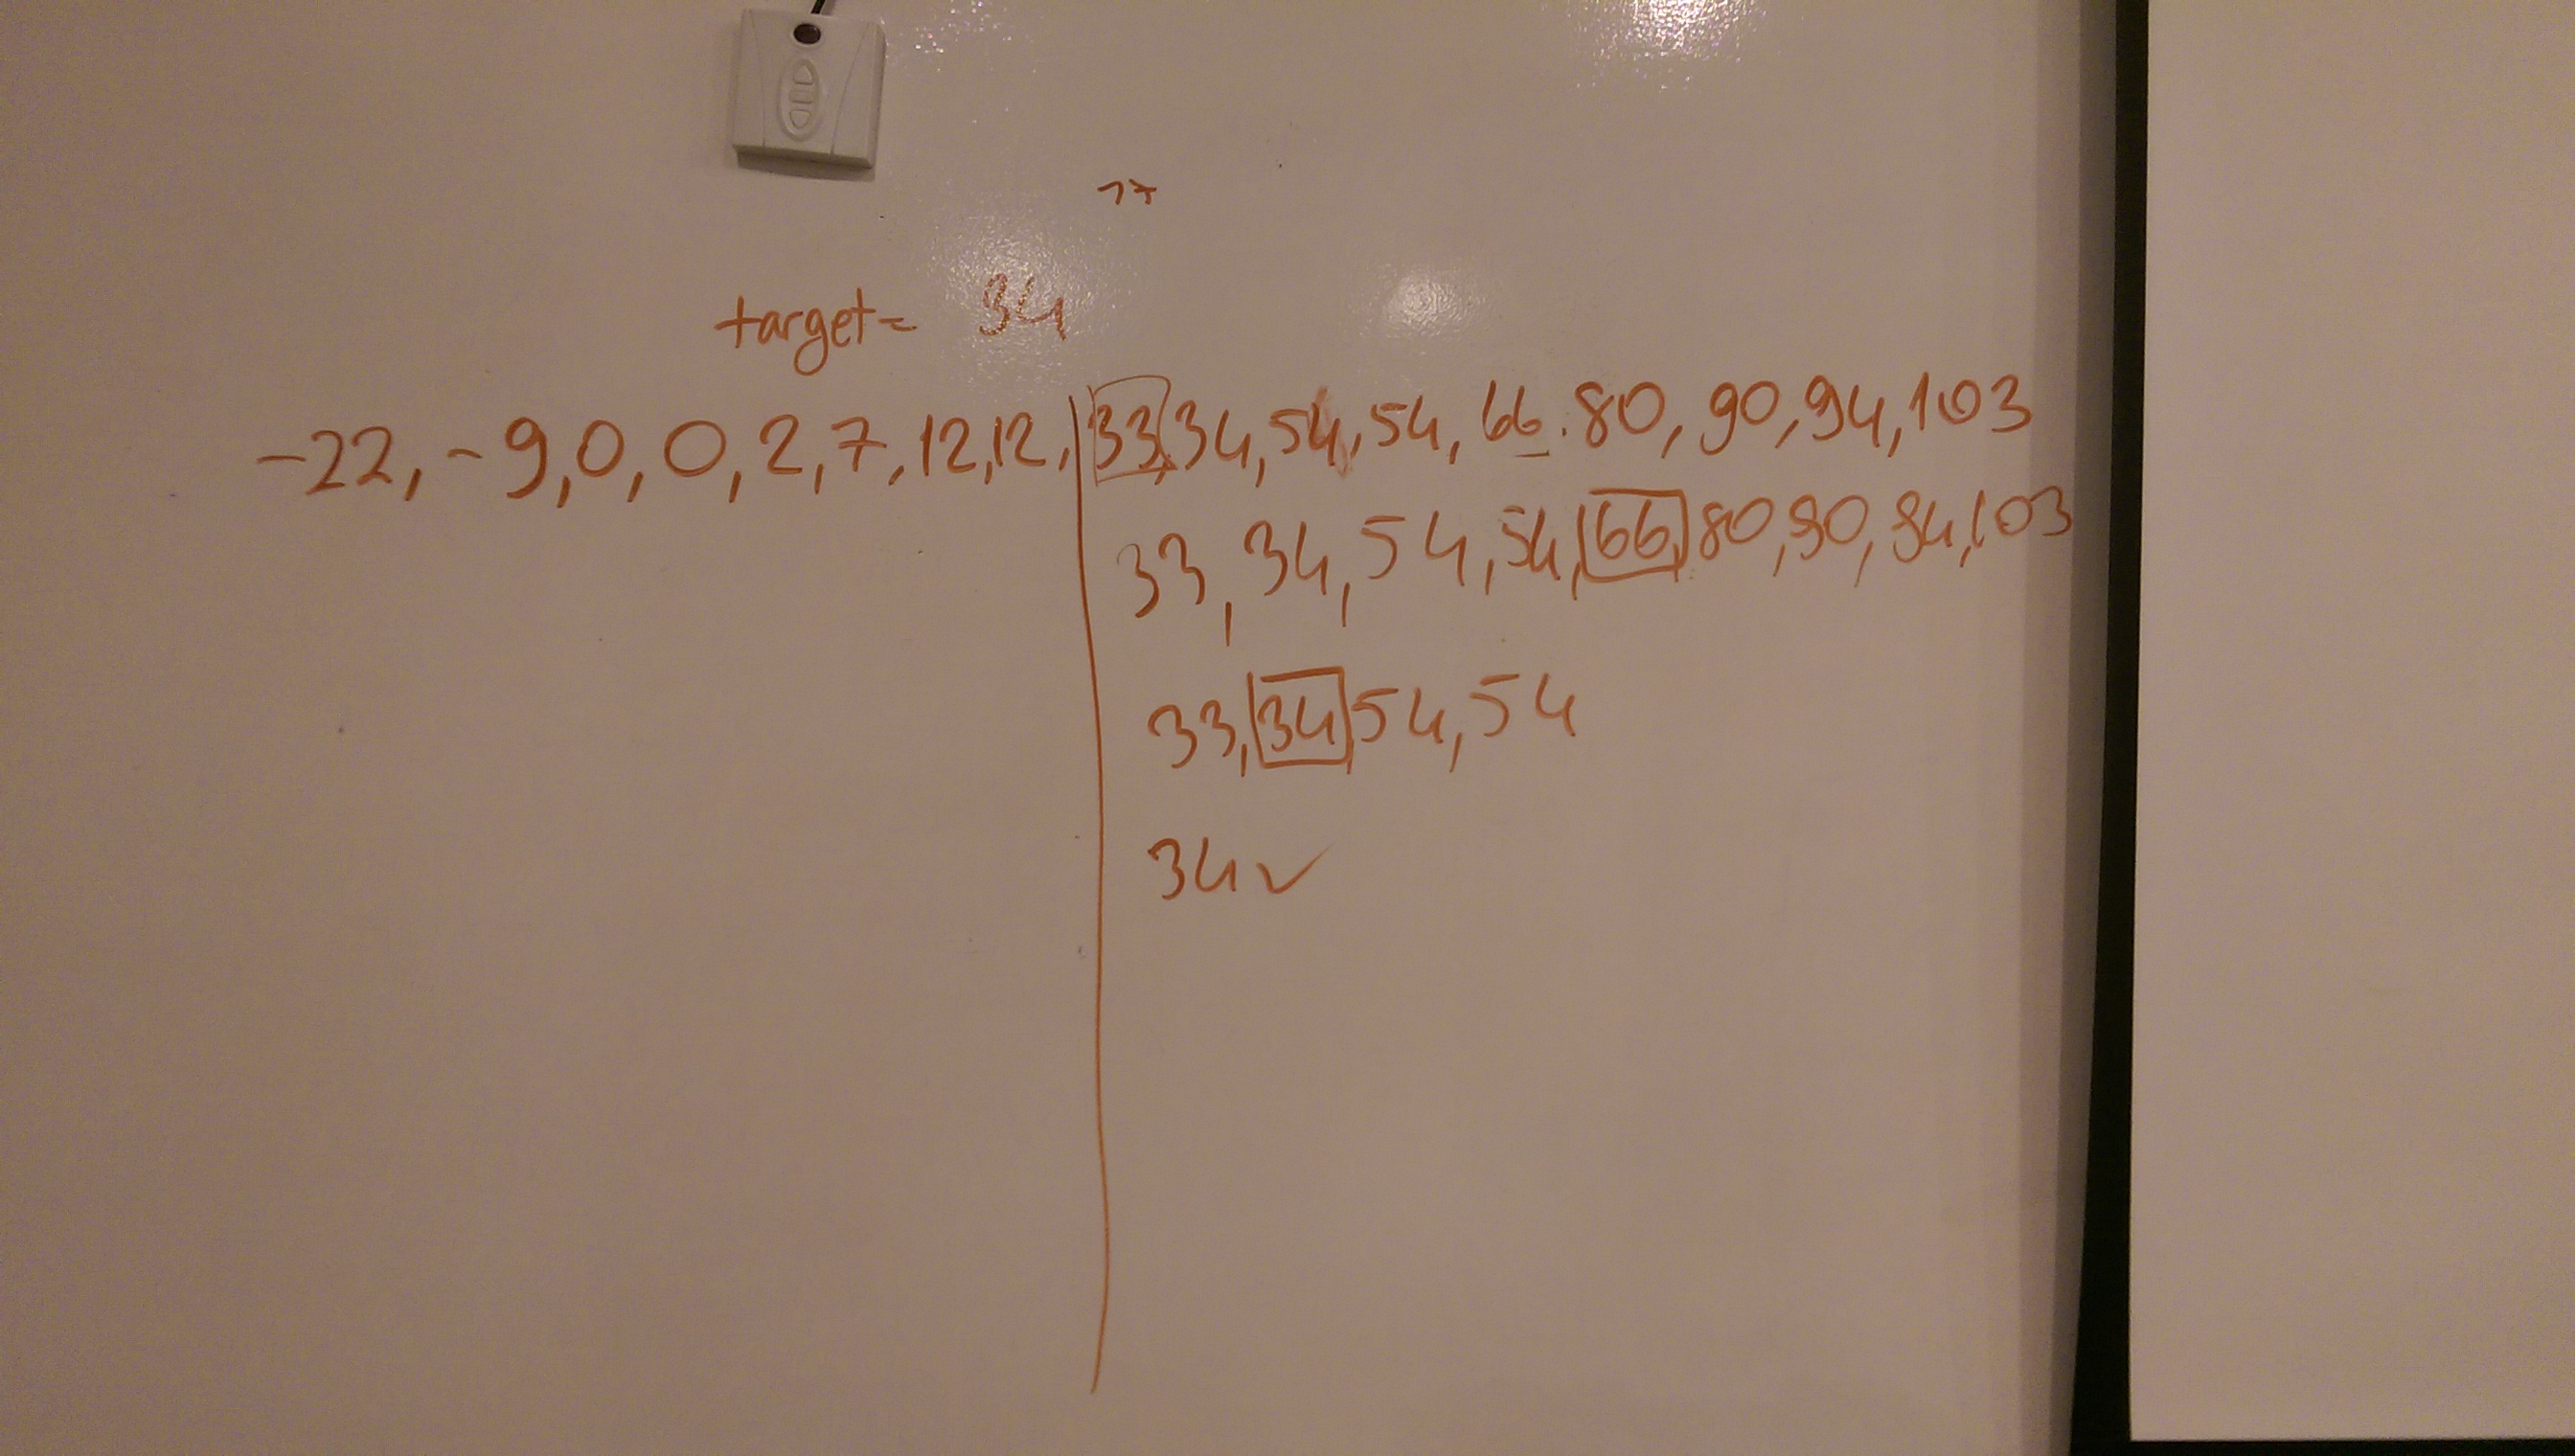 17
target= 34
-22, -9, 0, 0, 2, 7, 12, 12, 33, 34, 54, 54, 66. 80, 90, 94, 103
33, 34, 54, 54, 66, 80, 90, 94, 103
33, 34, 54, 54
34 ✓